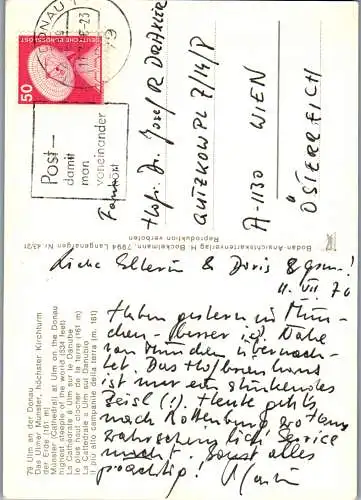 79 Ulm an der Donau
Das Ulmer Münster, höchster Kirchturm
der Erde (161 m)
Münster (Cathedral) at Ulm on the Donau
highest steeple of the world (534 feet)
La Cathédrale à Ulm sur le Danube
le plus haut clocher de la terre (161 m)
La Cattedrale a Ulm sul Danubio
il più alto campanile della terra (m. 161)
Boden-Ansichtskartenverlag H. Bockelmann, 7994 Langenargen Nr. 43/21
Reproduktion verboten
DONAU
-23
79
DEUTSCHE BUNDESPOST
50
Post-
damit
man
voneinander
hört
Hofr. Dr. Josef R
GUTZKOWPL 7/14/8
A-1130 WIEN
ÖSTERREICH
Liebe Ellerin & Doris &
11. VII 76
Haben gestern in Mün-
chen - besser i.d. Nähe
von München übernach-
tet. Das Hofbräuhaus
ist nur ein stinkendes
Beisl (!). Heute gehts
nach Rottenburg wo Hans
wahrscheinlich Service
macht. Sonst alles
prächtig!